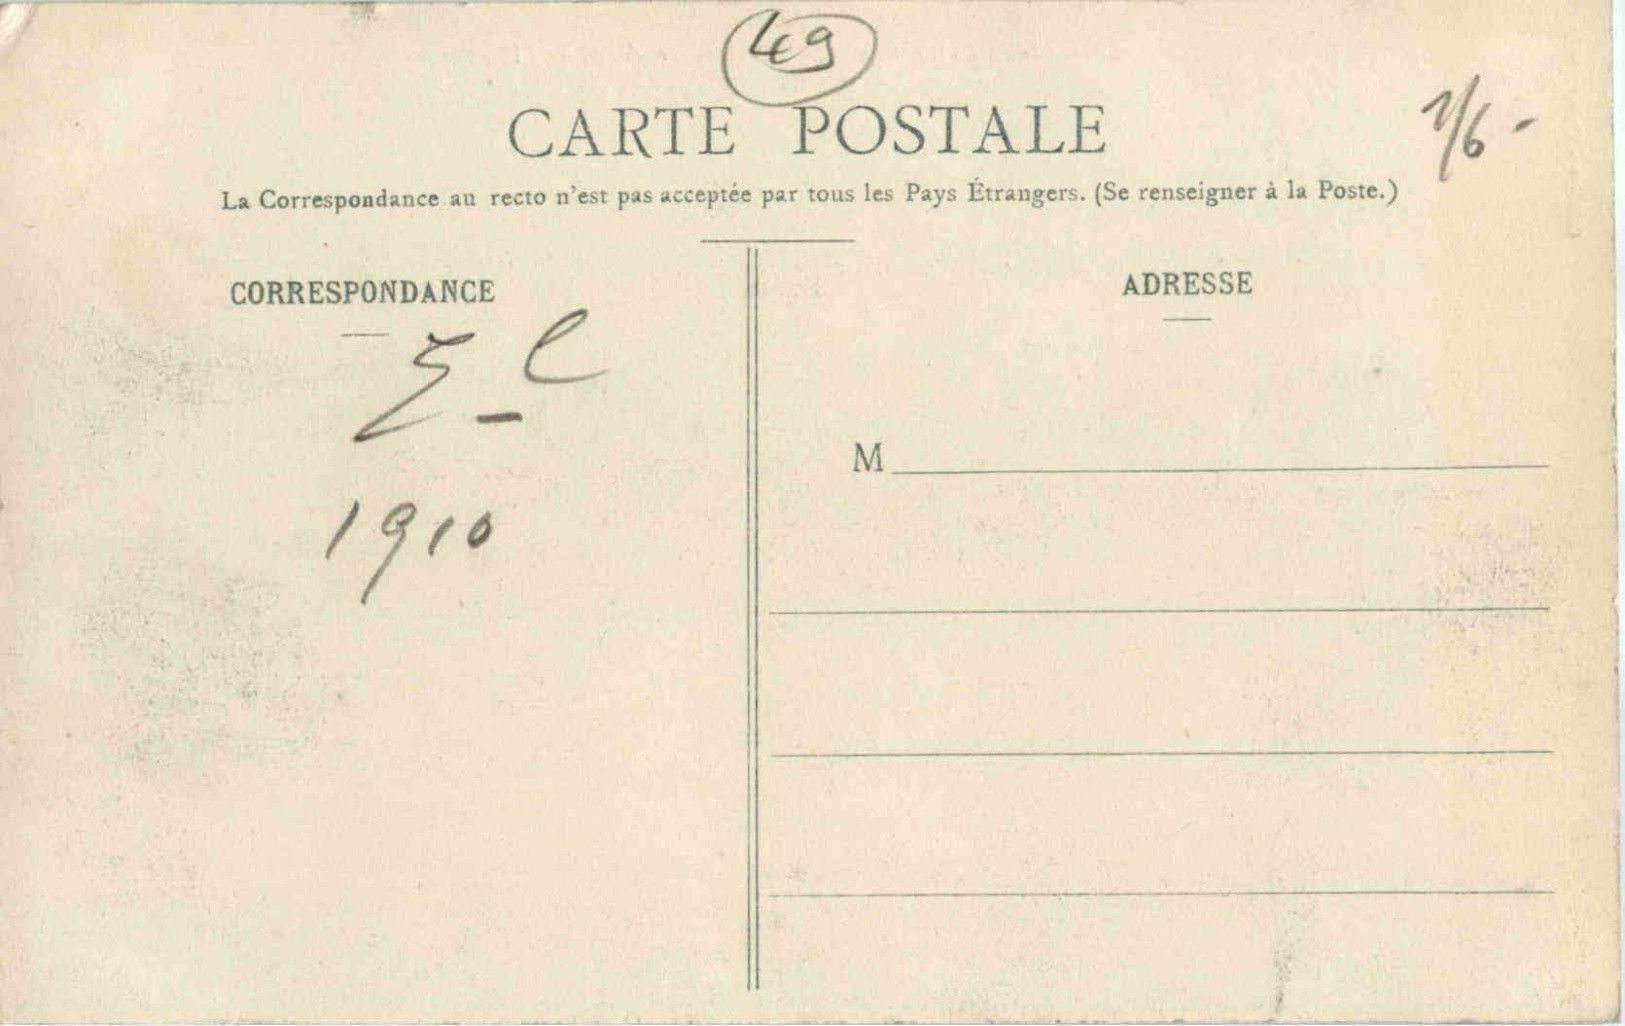 49
CARTE POSTALE
La Correspondance au recto n'est pas acceptée par tous les Pays Étrangers. (Se renseigner à la Poste.)
CORRESPONDANCE
ADRESSE
M
1910